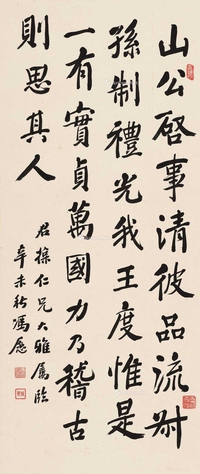 山公啓事清彼品流叔
孫制禮光我王度惟是
一有實貞萬國力乃稽古
則思其人
君操仁兄大雅屬臨
辛未秋馮愿